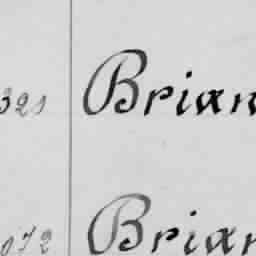 321 Brian
072 Brian